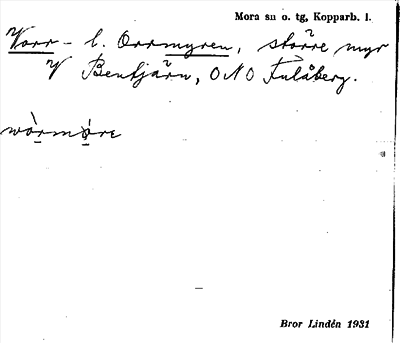 Mora sn o. tg, Kopparb. l.
Vorr- l. Orrmyren, större myr
V Bentjärn, ONO Fulåberg.
wòrmøre
Bror Lindén 1931